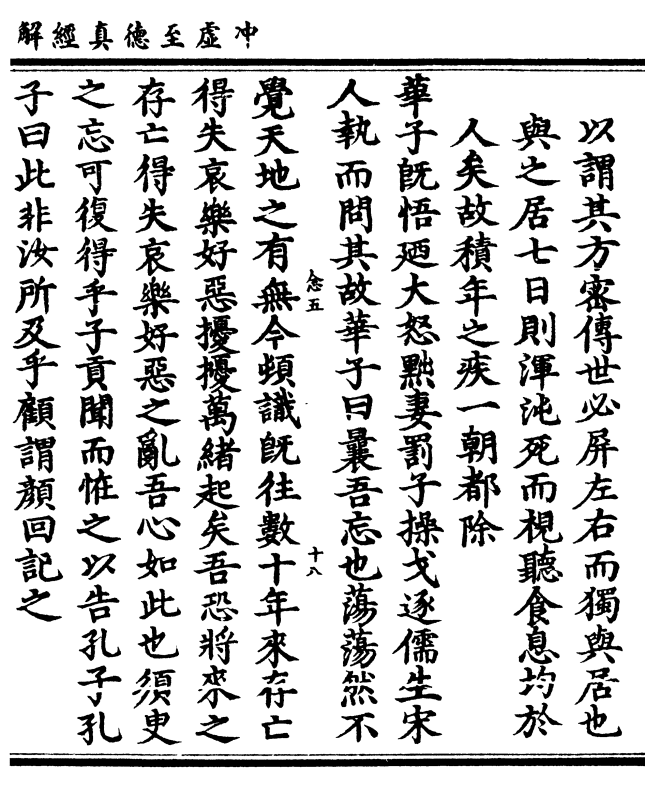 冲虛至德真經解
以謂其方密傳世必屏左右而獨與居也
與之居七日則渾沌死而視聽食息均於
人矣故積年之疾一朝都除
華子既悟廼大怒黜妻罰子操戈逐儒生宋
人執而問其故華子曰曩吾忘也蕩蕩然不
念五
十八
覺天地之有無今頓識既往數十年來存亡
得失哀樂好惡擾擾萬緒起矣吾恐將來之
存亡得失哀樂好惡之亂吾心如此也須臾
之忘可復得乎子貢聞而恠之以告孔子孔
子曰此非汝所及乎顧謂顏回記之